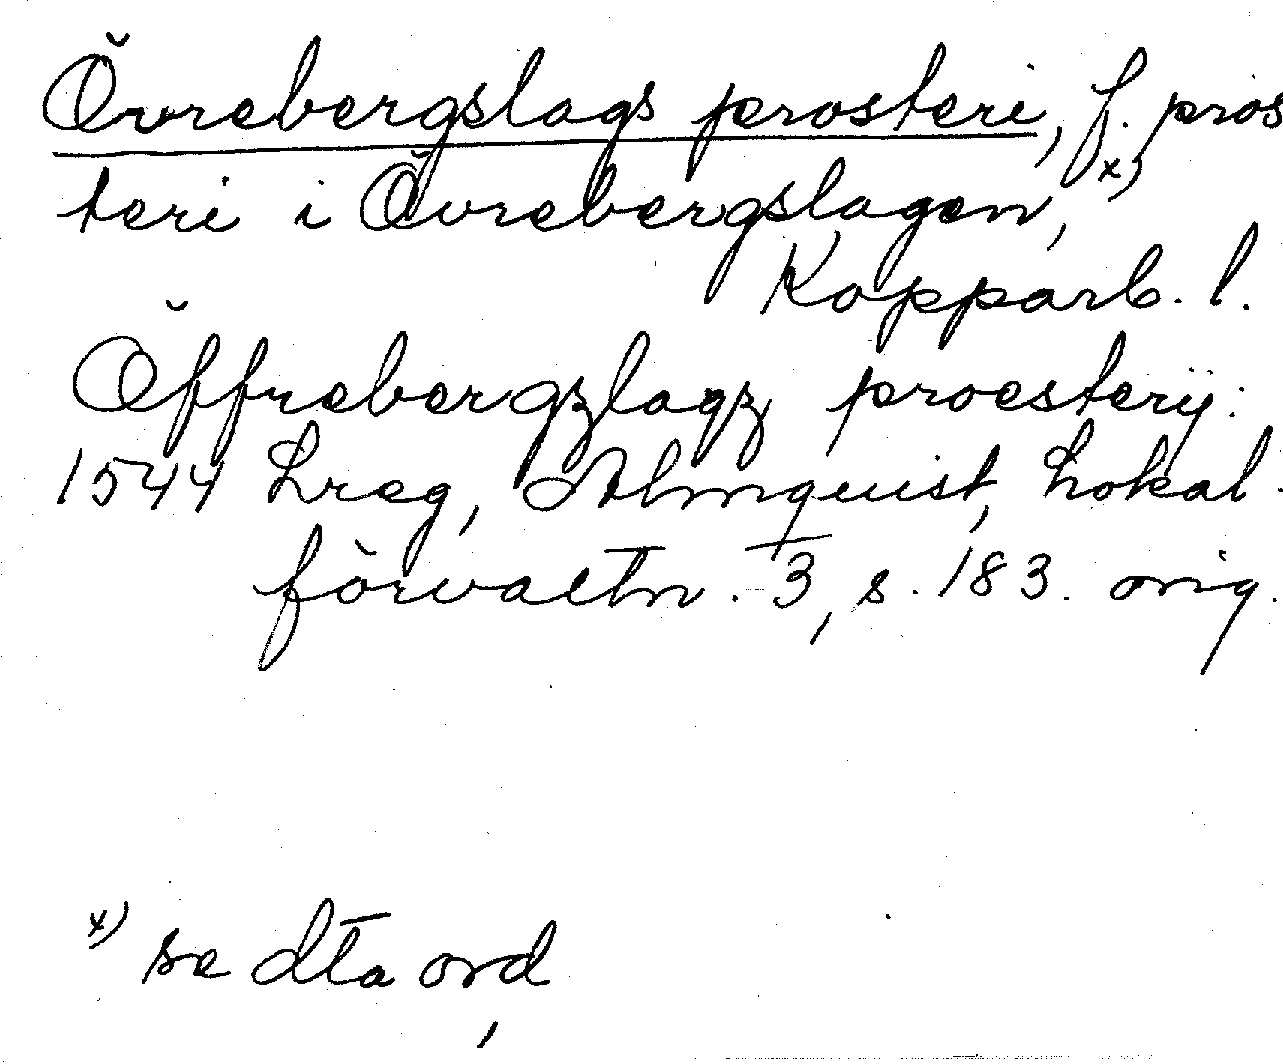 Övrebergslags prosteri, f. pros
teri i Övrebergslagen, x)
Kopparb. l.
Öffrebergzlagz proesterij:
1544 Lreg, Almquist, Lokal-
förvaltn. 3, s. 183. orig.
x) se dta ord